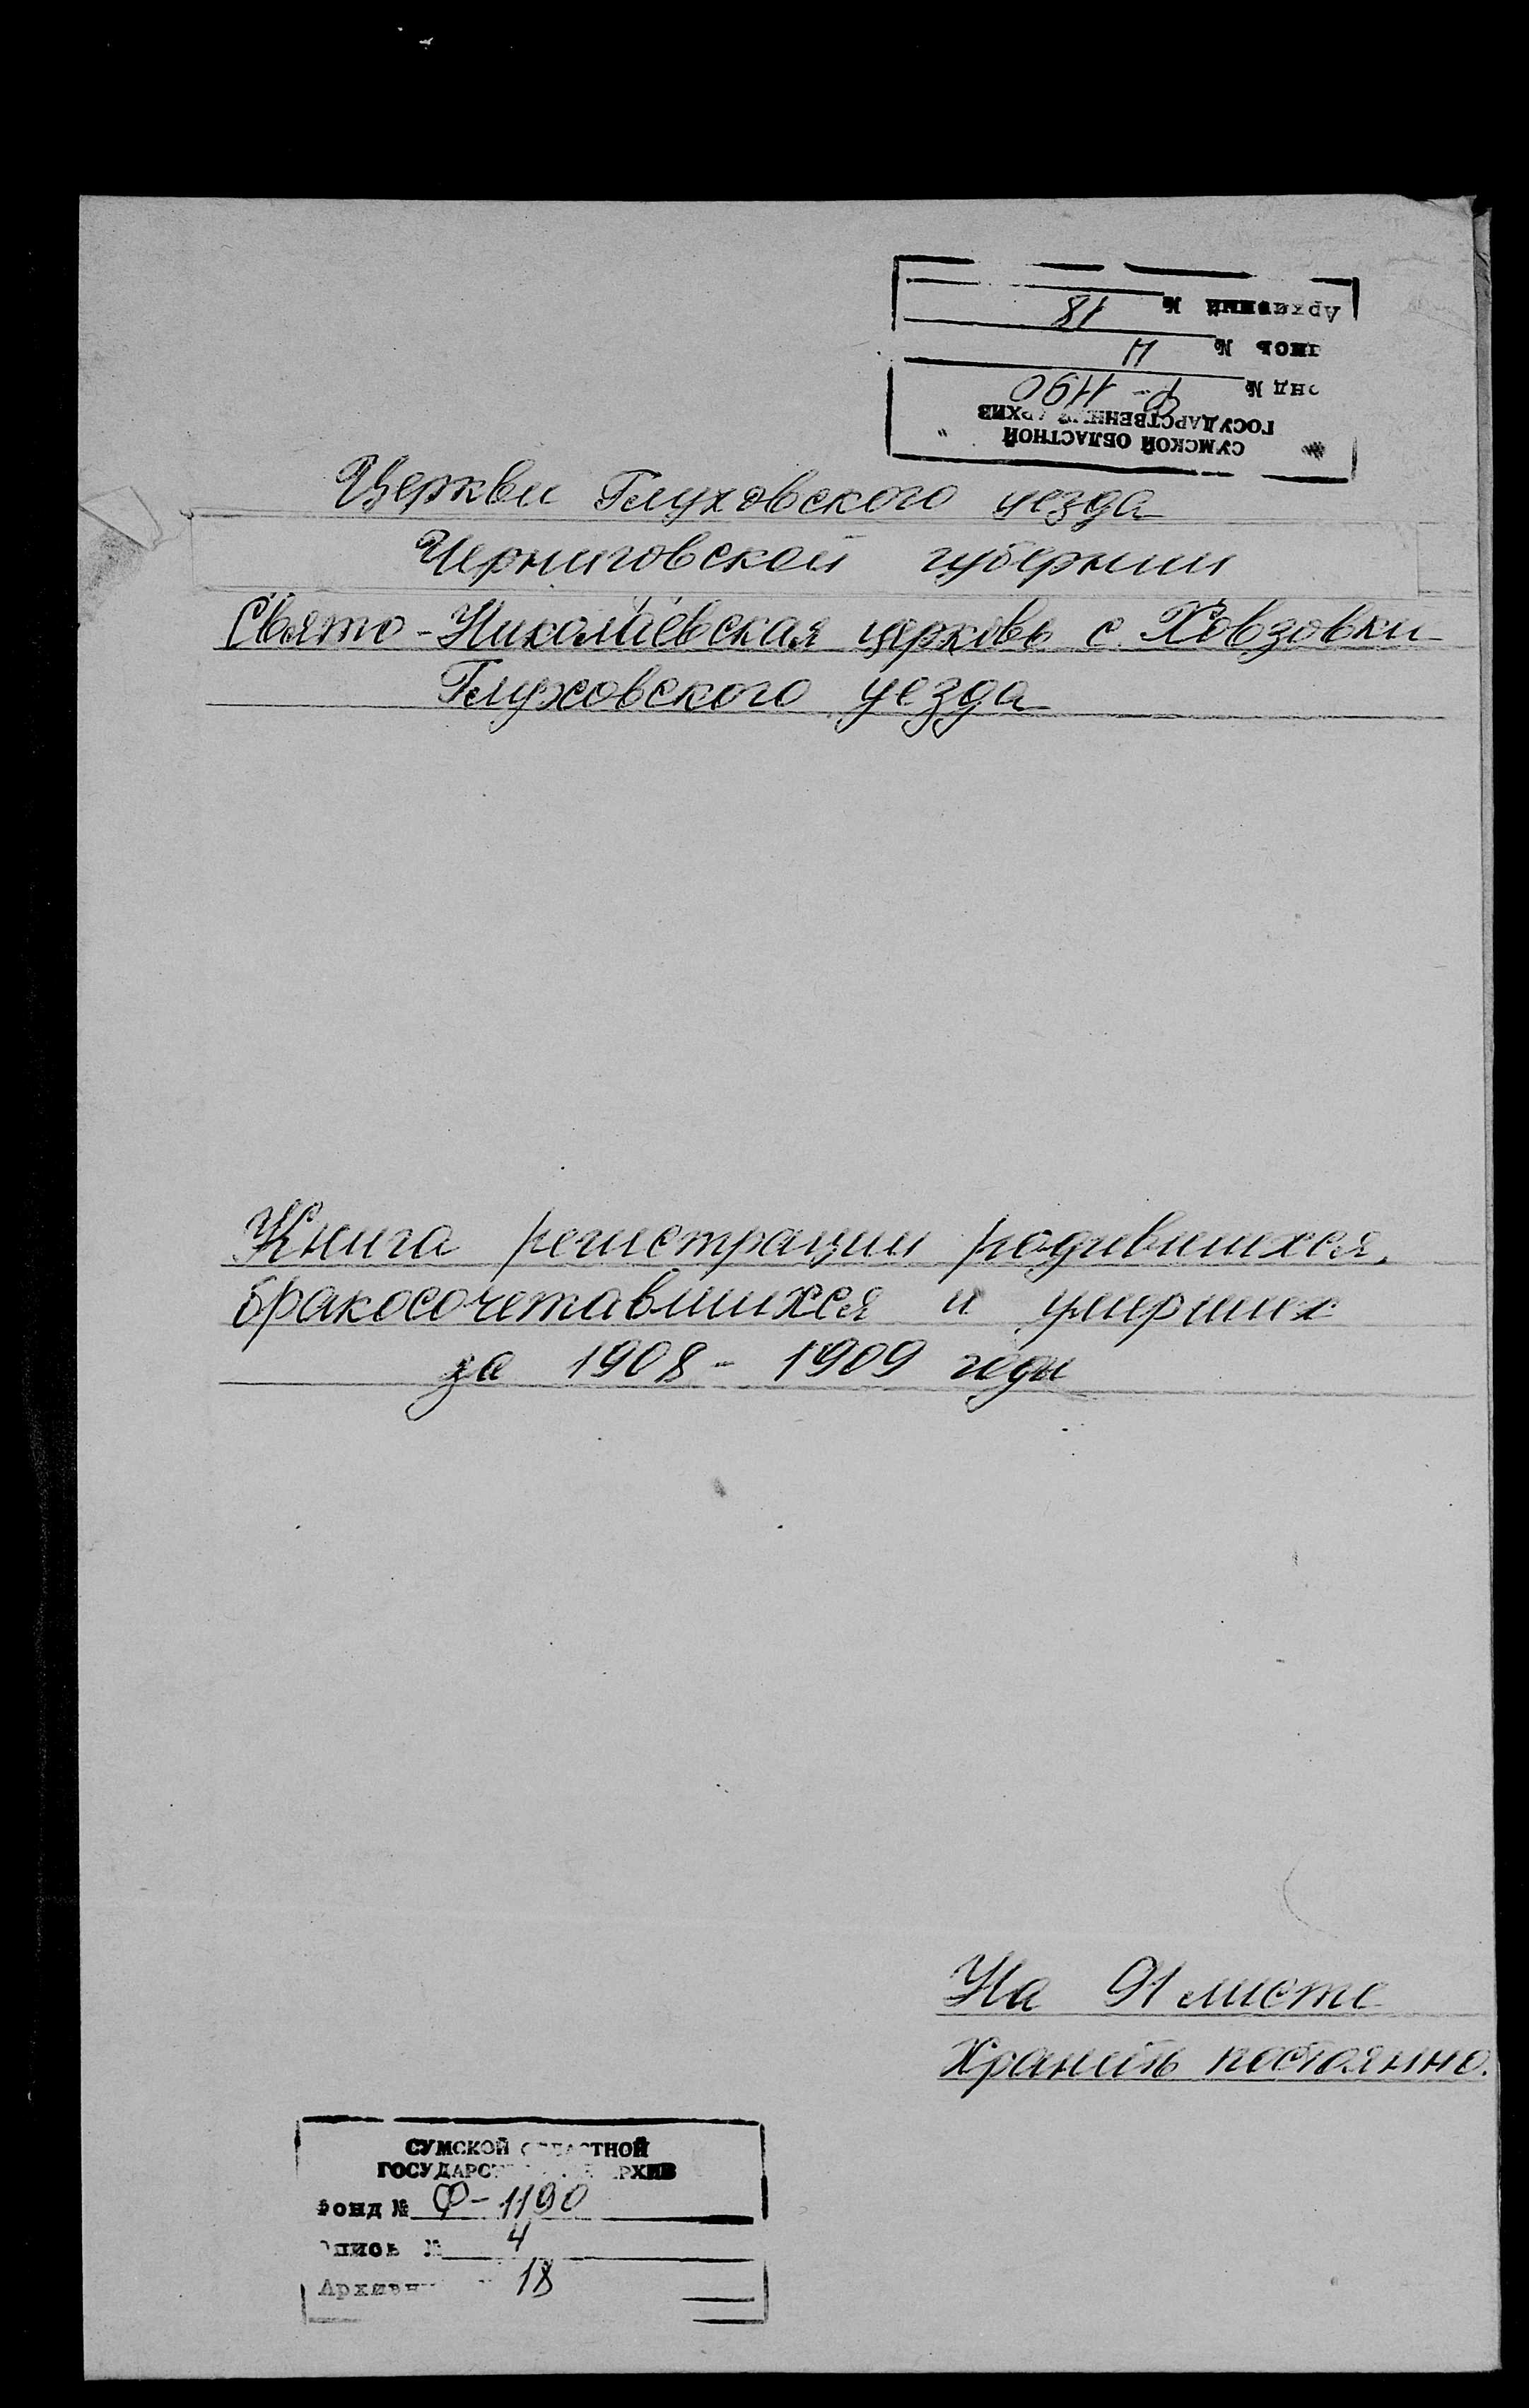 СУМСКОЙ ОБЛАСТНОЙ
ГОСУДАРСТВЕННЫЙ АРХИВ
онд № Ф-1190
пись № 4
Архивный № 18
Церкви Глуховского уезда
Черниговской губернии
Свято-Николаевская церковь с. Ховзовки
Глуховского уезда
Книга регистрации родившихся,
бракосочетавшихся и умерших
за 1908 - 1909 годы
На 91 листе
Хранить постоянно.
СУМСКОЙ ОБЛАСТНОЙ
ГОСУДАРСТВЕННЫЙ АРХИВ
Фонд № Ф-1190
пись № 4
Архивн 18